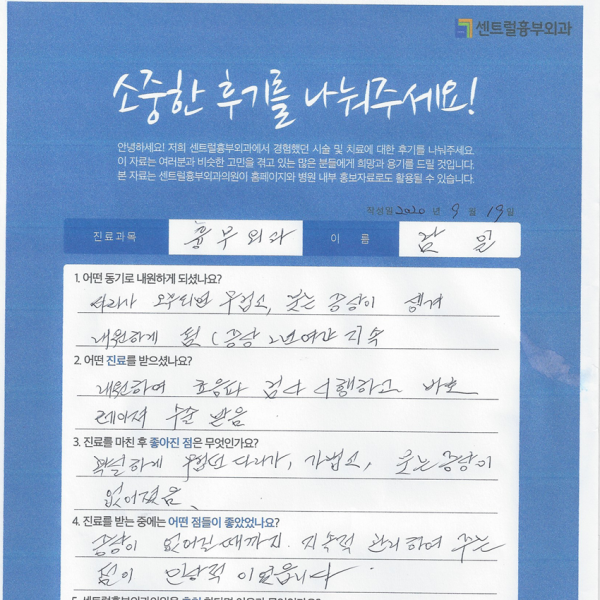 센트럴흉부외과
소중한 후기를 나눠주세요!
안녕하세요! 저희 센트럴흉부외과에서 경험했던 시술 및 치료에 대한 후기를 나눠주세요.
이 자료는 여러분과 비슷한 고민을 겪고 있는 많은 분들에게 희망과 용기를 드릴 것입니다.
본 자료는 센트럴흉부외과의원이 홈페이지와 병원 내부 홍보자료로도 활용될 수 있습니다.
작성일 2020 년 9 월 19 일
진료과목 흉부외과 이 름
1. 어떤 동기로 내원하게 되셨나요?
오후되면 무겁고, 붓는 증상이 생겨
내원하게 됨 (증상 2년여간 지속
2. 어떤 진료를 받으셨나요?
내원하여 초음파 검사 시행하고 바로
레이저 수술 받음
3. 진료를 마친 후 좋아진 점은 무엇인가요?
확실하게 무겁던 다리가, 가볍고, 붓는증상이
없어졌음.
4. 진료를 받는 중에는 어떤 점들이 좋았었나요?
증상이 없어질때까지 지속적 관리하여 주는
점이 인상적 이었습니다